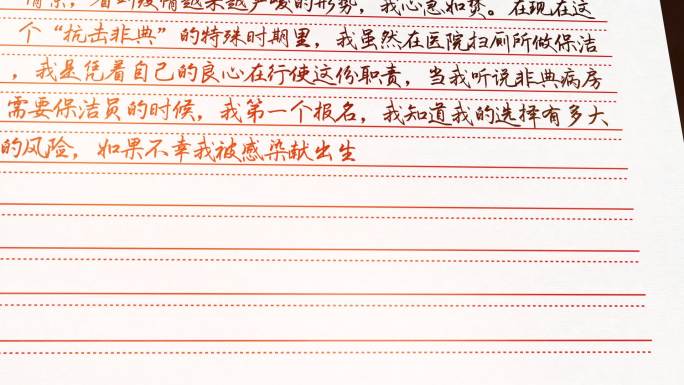 情景，看到疫情越来越严峻的形势，我心急如焚。在现在这
个“抗击非典”的特殊时期里，我虽然在医院扫厕所做保洁
，我是凭着自己的良心在行使这份职责，当我听说非典病房
需要保洁员的时候，我第一个报名，我知道我的选择有多大
的风险，如果不幸我被感染献出生